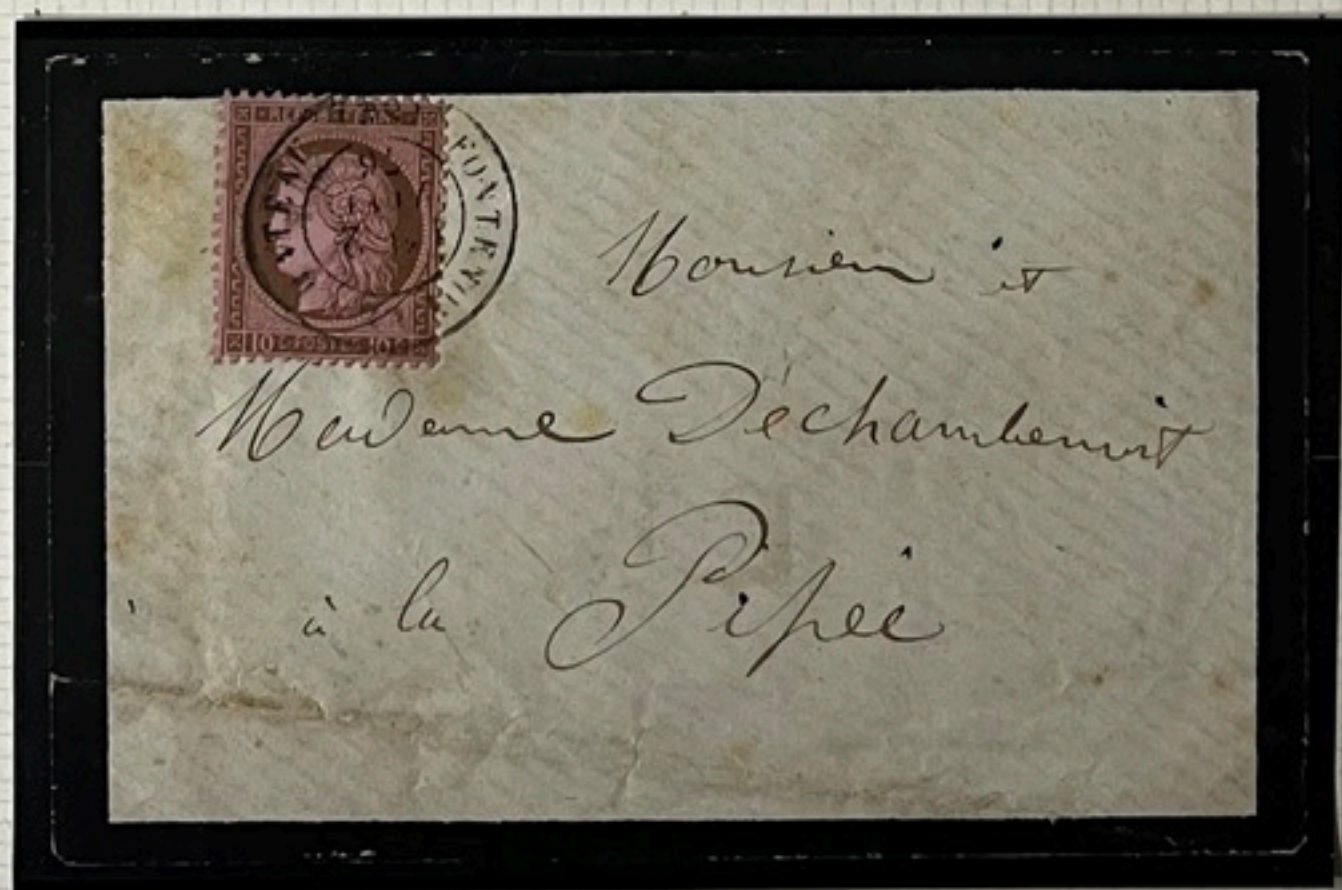 REPUB · FRANC
10 C · POSTES · 10 C
Monsieur et
Madame Déchambenoit
à la Pipée